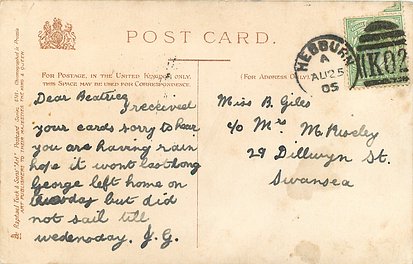 POST CARD.
FOR POSTAGE, IN THE UNITED KINGDOM ONLY,
THIS SPACE MAY BE USED FOR CORRESPONDENCE.
(FOR ADDRESS ONLY.)
HEBBURN
A
AU 25
05
K02
Dear Beatrice
I received
your cards sorry to hear
you are having rain
hope it wont last long
George left home on
but did
not sail till
wedensday. J. G.
Miss B. Giles
c/o Mrs
29 Dillwyn St.
Swansea
Raphael Tuck & Sons'
ART PUBLISHERS TO THEIR MAJESTIES THE KING & QUEEN